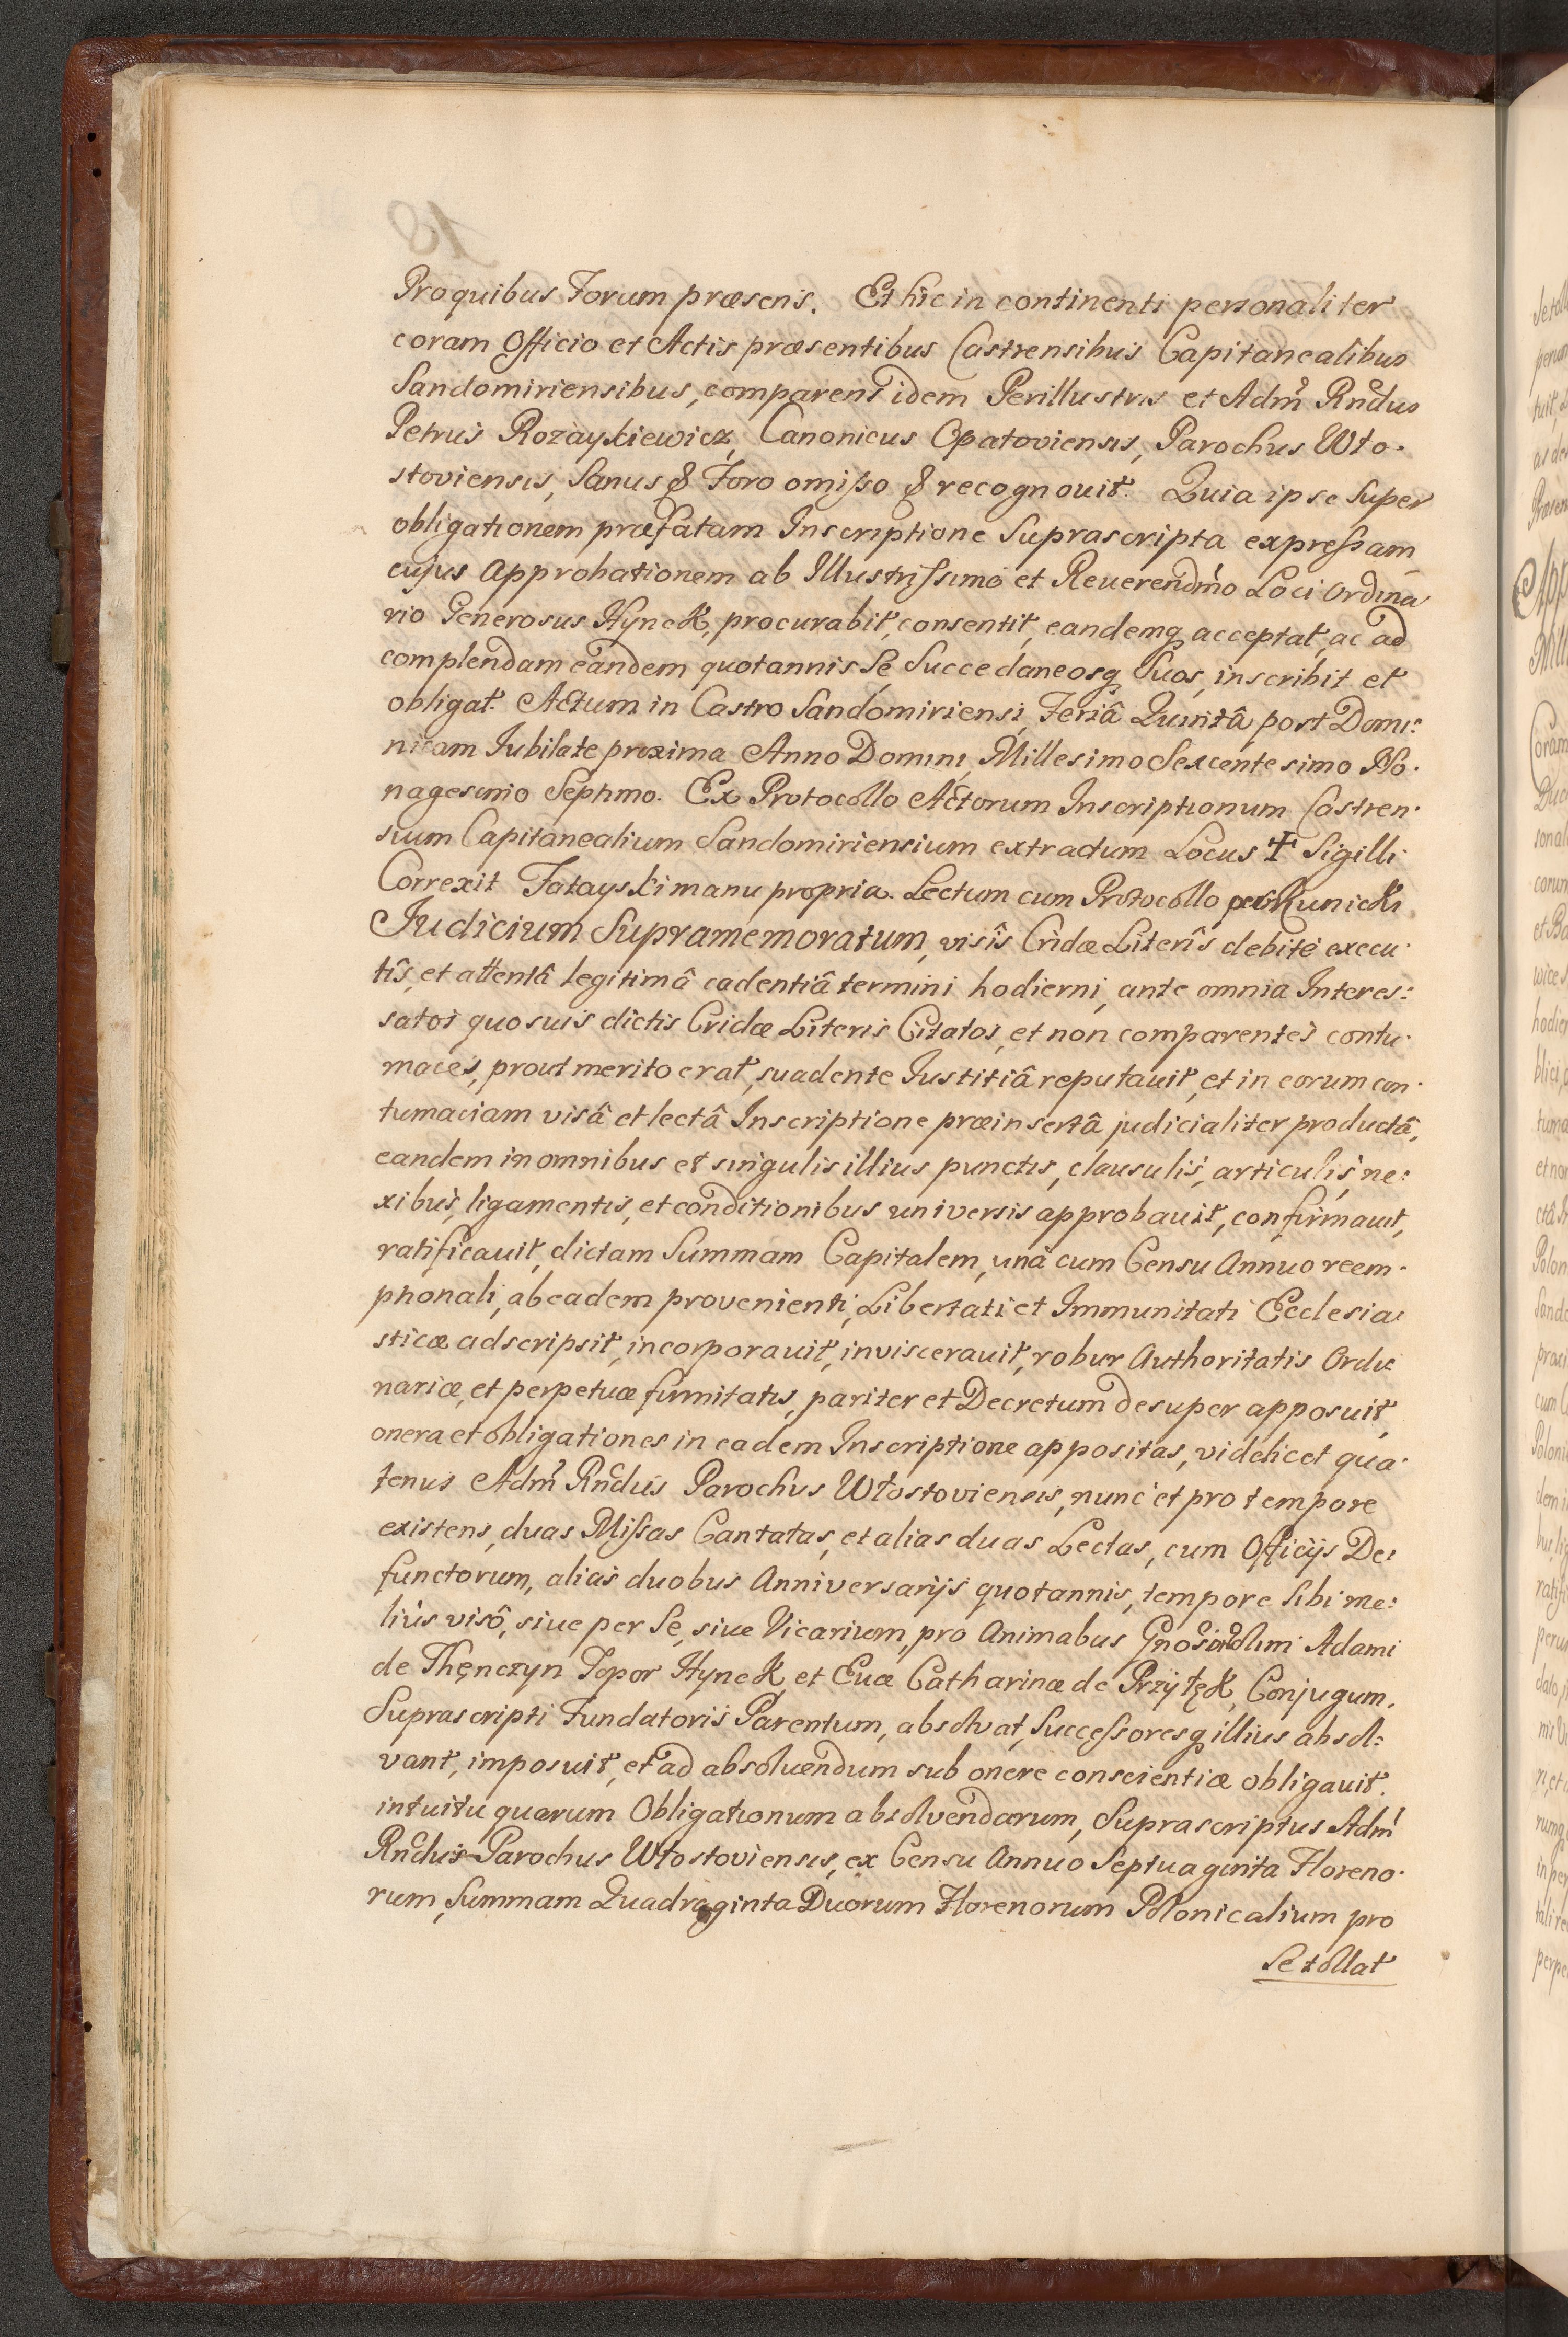 Pro quibus Forum præsens. Et hic in continenti personaliter
coram Officio et Actis præsentibus Castrensibus Capitanealibus
Sandomiriensibus, comparens idem Perillustris et Adm̃ Rñdus
Petrus Rozayskiewicz, Canonicus Opatoviensis, Parochus Wło-
stoviensis, Sanus & Foro omisso & recognouit. Quia ipse super
obligationem præfatam Inscriptione Suprascripta expressam,
cujus Approbationem ab Illustrissimo et Reverendm̃o Loci Ordina
rio Generosus Hynek, procurabit, consentit, eandemq acceptat, ac ad
complendam eandem quotannis Se, Succedaneosq Suos, inscribit et
obligat. Actum in Castro Sandomiriensi, Feriâ Quintâ post Domi:
nicam Iubilate proxima Anno Domini, Millesimo Sexcentesimo No-
nagesimo Septimo. Ex Protocollo Actorum Inscriptionum Castren-
sium Capitanealium Sandomiriensium extractum Locus ✝ Sigilli
Correxit Fatayski manu propria. Lectum cum Protocollo per Kunicki
Judicium Supramemoratum, visîs Cridæ Literîs debitè execu-
tîs, et attentâ legitimâ cadentiâ termini hodierni, ante omnia Interes:
satos quosuis dictis Cridæ Literis Citatos, et non comparentes contu-
maces, prout merito erat, suadente Iustitiâ reputauit, et in eorum con-
tumaciam visâ et lectâ Inscriptione præinsertâ judicialiter productâ,
eandem in omnibus et singulis illius punctis, clausulis, articulis, ne:
xibus, ligamentis, et conditionibus universis approbauit, confirmauit,
ratificauit, dictam Summam Capitalem, unà cum Censu Annuo reem-
ptionali, ab eadem provenienti, Libertati et Immunitati Ecclesia
sticæ adscripsit, incorporauit, inviscerauit, robur Authoritatis Ordi:
nariæ, et perpetuæ firmitatis, pariter et Decretum desuper apposuit,
onera et obligationes in eadem Inscriptione appositas, videlicet qua-
tenus Adm̃ Rñdus Parochus Włostoviensis, nunc et pro tempore
existens, duas Missas Cantatas, et alias duas Lectas, cum Officijs De:
functorum, alias duobus Anniversarijs quotannis, tempore sibi me:
liùs visô, siue per Se, siue Vicarium, pro Animabus Gnõs õlim Adami
de Thęnczyn Topor Hynek, et Euæ Catharinæ de Przytęk, Conjugum,
Suprascripti Fundatoris Parentum, absolvat, Successoresq illius absol:
vant, imposuit, et ad absoluendum sub onere conscientiæ obligauit.
intuitu quarum Obligationum absolvendarum, Suprascriptus Adm̃
Rñdus Parochus Włostoviensis, ex Censu Annuo Septuaginta Floreno-
rum, Summam Quadraginta Duorum Florenorum Polonicalium pro
Se tollat